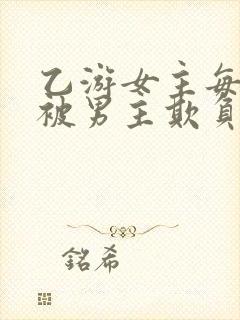 乙游女主每
被男主欺負
銘希